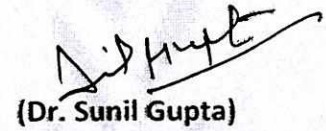 (Dr. Sunil Gupta)